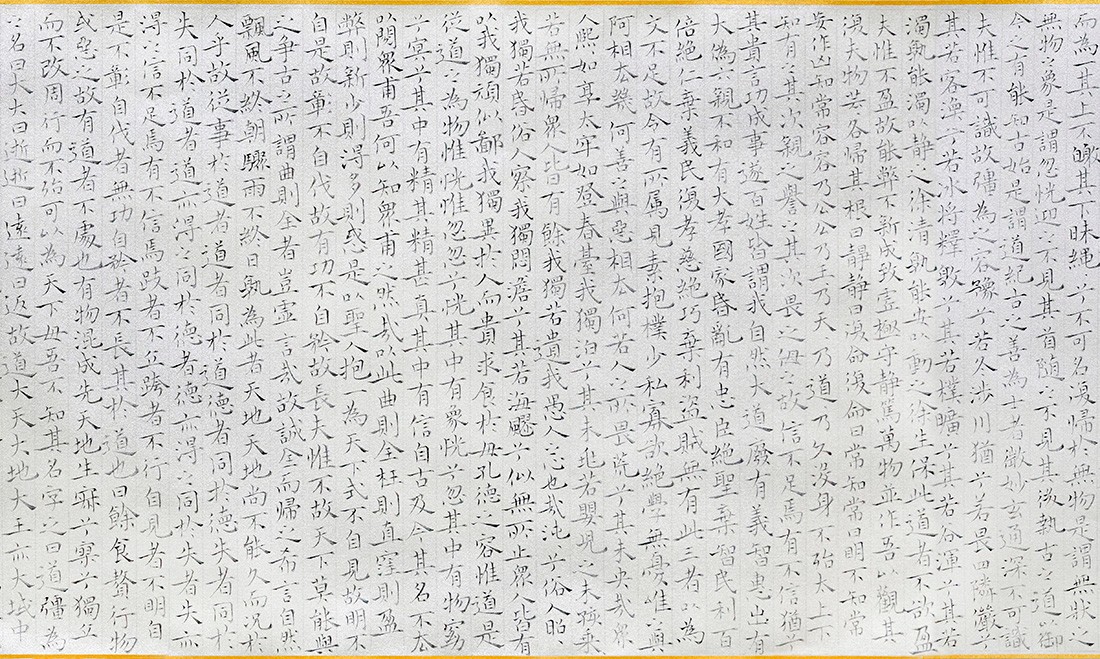 而為一其上不皦其下昧繩兮不可名復歸於無物是謂無狀之
無物之象是謂忽恍迎之不見其首隨之不見其後執古之道以御
今之有能知古始是謂道紀古之善為士者微妙玄通深不可識
夫惟不可識故彊為之容豫兮若冬涉川猶兮若畏四隣儼兮
其若容渙兮若冰將釋敦兮其若樸曠兮其若谷渾兮其若
濁孰能濁以静之徐清孰能安以動之徐生保此道者不欲盈
夫惟不盈故能弊不新成致虛極守静篤萬物並作吾以觀其
復夫物芸各歸其根曰靜靜曰復命復命曰常知常曰明不知常
妄作凶知常容容乃公公乃王乃天乃道乃久沒身不殆太上下
知有之其次親之譽之其次畏之侮之故信不足焉有不信猶兮
其貴言功成事遂百姓皆謂我自然大道廢有義智惠出有
大偽六親不和有大孝國家昏亂有忠臣絕聖棄智民利百
倍絕仁棄義民復孝慈絕巧棄利盜賊無有此三者以為
文不足故令有所屬見素抱樸少私寡欲絕學無憂唯之與
阿相去幾何善之與惡相去何若人之所畏荒兮其未央哉衆
人熙如享太牢如登春臺我獨泊兮其未兆若嬰兒之未孩乘
若無所歸衆人皆有餘我獨若遺我愚人之心也哉沌兮俗人昭
我獨若昏俗人察我獨悶澹兮其若海飂兮似無所止衆人皆有
以我獨頑似鄙我獨異於人而貴求食於母孔德之容惟道是
從道之為物惟恍惟忽忽兮恍其中有象恍兮忽其中有物窈
兮冥兮其中有精其精甚真其中有信自古及今其名不去
以閱衆甫吾何以知衆甫之然哉以此曲則全枉則直窪則盈
弊則新少則得多則惑是以聖人抱一為天下式不自見故明不
自是故彰不自伐故有功不自矜故長夫惟不故天下莫能與
之爭古之所謂曲則全者豈虛言哉故誠全而歸之希言自然
飄風不終朝驟雨不終日孰為此者天地天地尚不能久而況於
人乎故從事於道者道者同於道德者同於德失者同於
失同於道者道亦得之同於德者德亦得之同於失者失亦
得之信不足焉有不信焉跂者不立跨者不行自見者不明自
是不彰自伐者無功自矜者不長其於道也曰餘食贅行物
或惡之故有道者不處也有物混成先天地生寂兮寥兮獨立
而不改周行而不殆可以為天下母吾不知其名字之曰道彊為
之名曰大大曰逝逝曰遠遠曰返故道大天大地大王亦大域中